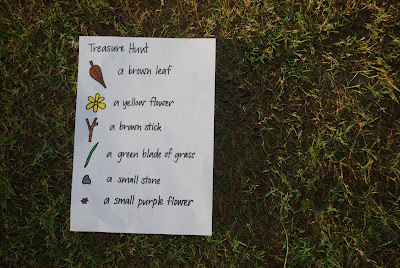 Treasure Hunt
a brown leaf
a yellow flower
a brown stick
a green blade of grass
a small stone
a small purple flower